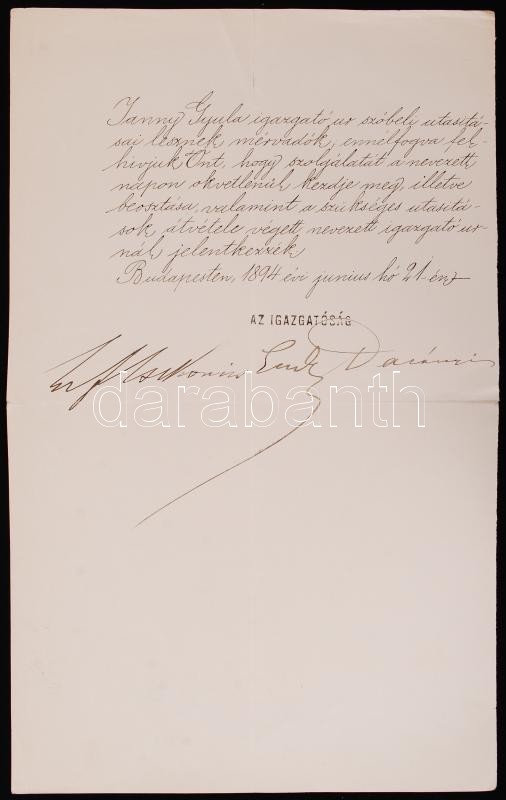 Janny Gyula igazgató ur szóbeli utasítá-
sai lesznek mérvadók, ennélfogva fel-
hivjuk Önt, hogy szolgálatát a nevezett
napon okvetlenül kezdje meg, illetve
beosztása, valamint a szükséges utasítá-
sok átvétele végett, nevezett igazgató ur-
nál jelentkezzék
Budapesten, 1894 évi junius hó 21-én
AZ IGAZGATÓSÁG
Darányi
darabanth